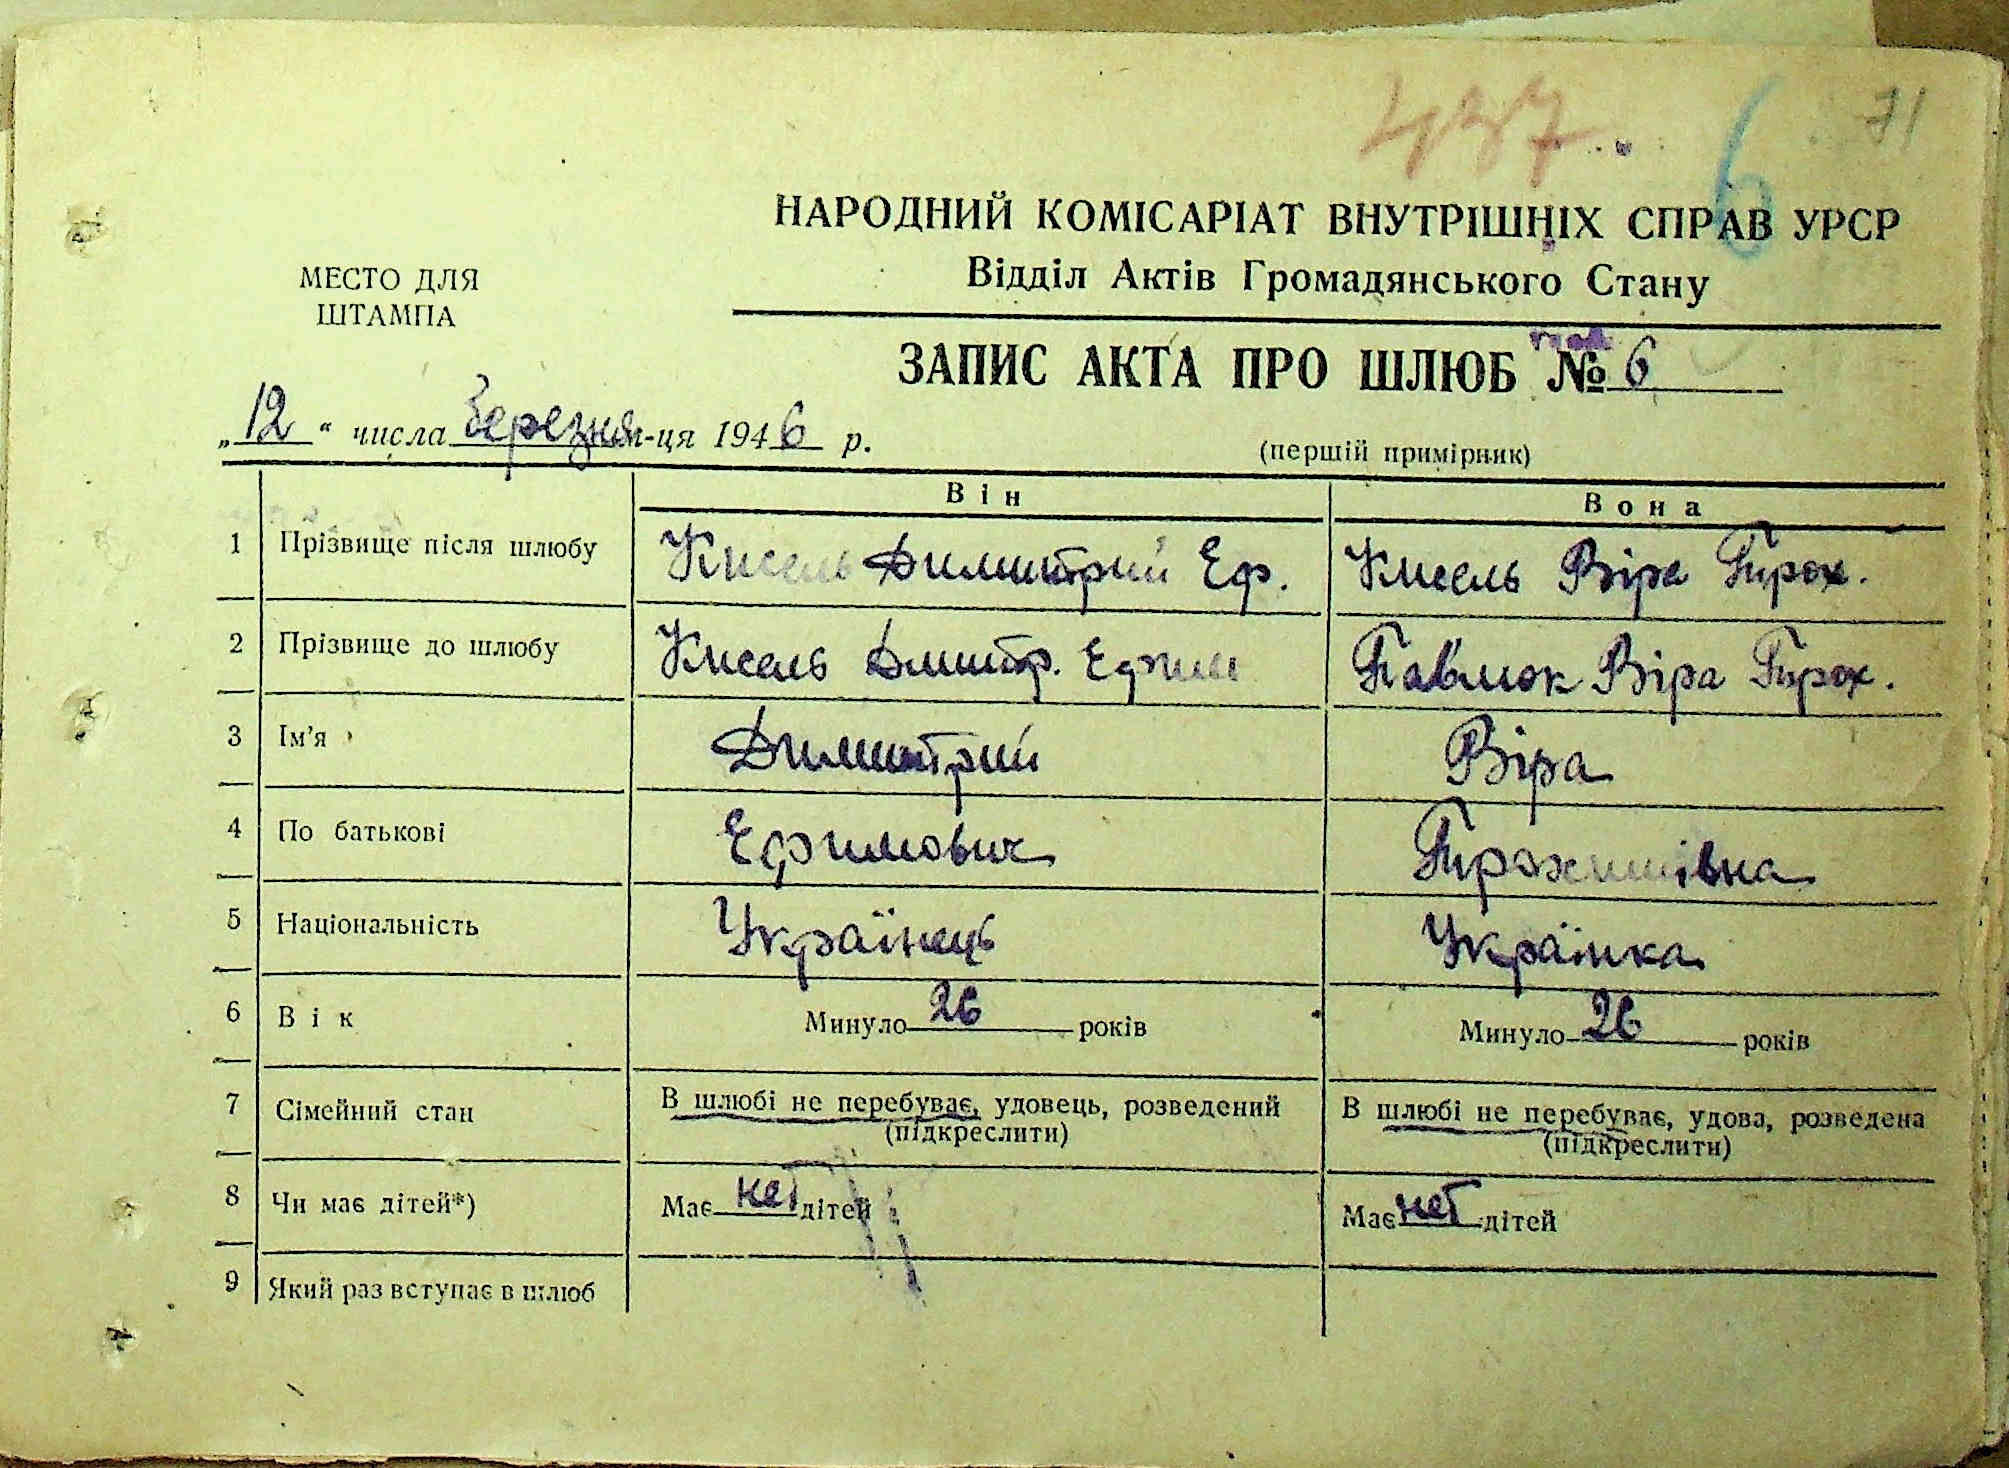 437 6 71
НАРОДНИЙ КОМІСАРІАТ ВНУТРІШНІХ СПРАВ УРСР
Відділ Актів Громадянського Стану
МЕСТО ДЛЯ
ШТАМПА
ЗАПИС АКТА ПРО ШЛЮБ № 6
„12“ числа березня м-ця 1946 р.
(першій примірник)
Він Вона
1 Прізвище після шлюбу Кисель Димитрий Еф. Кисель Віра Трох.
2 Прізвище до шлюбу Кисель Дмитр. Ефим Павлюк Віра Трох.
3 Ім'я Димитрий Віра
4 По батькові Ефимович Трохимівна
5 Національність Українець Українка
6 Вік Минуло 26 років Минуло 26 років
7 Сімейний стан В шлюбі не перебуває, удовець, розведений В шлюбі не перебуває, удова, розведена
(підкреслити) (підкреслити)
8 Чи має дітей*) Має нет дітей Має нет дітей
9 Який раз вступає в шлюб